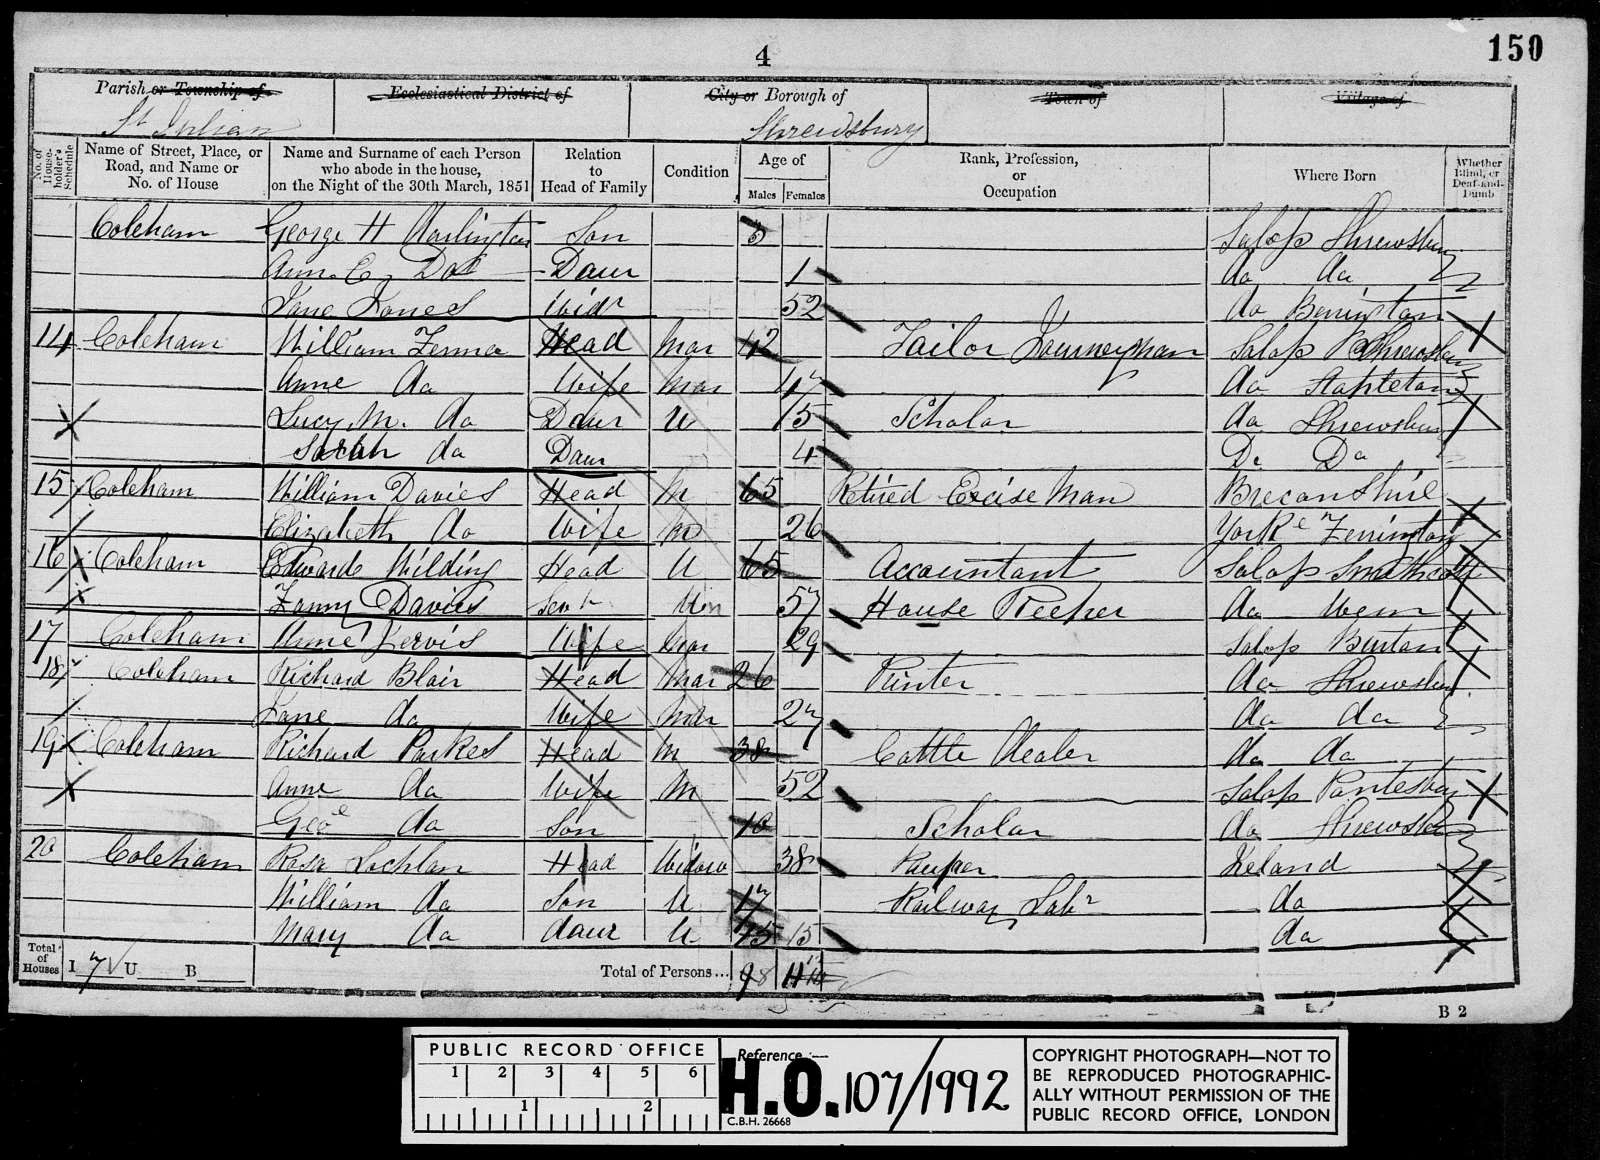 4
150
Parish or Township of
Ecclesiastical District of
City or Borough of
Town of
Village of
St Julian
Shrewsbury
No. of House-holder's Schedule
Name of Street, Place, or Road, and Name or No. of House
Name and Surname of each Person who abode in the house, on the Night of the 30th March, 1851
Relation to Head of Family
Condition
Age of
Males
Females
Rank, Profession, or Occupation
Where Born
Whether Blind, or Deaf-and-Dumb
Coleham George H Son 3 Salop Shrewsbury
Ann E Do Daur 1 do do
Jane Jones 52 do
14 Coleham William Head Mar 42 Tailor Journeyman Salop Shrewsbury
Anne do Wife Mar 47 do Stapleton
Lucy M. do Daur U 15 Scholar do Shrewsbury
Sarah do Daur 4 Do Do
15 Coleham William Davies Head M 65 Retired Excise Man Breconshire
Elizabeth do Wife M 26
16 Coleham Edward Wilding Head U 65 Accountant Salop
Fanny Davies Servt Un 57 House Keeper do Wem
17 Coleham Anne Jervis Wife Mar 29 Salop
18 Coleham Richard Blair Head Mar 26 Printer do Shrewsbury
Jane do Wife Mar 27 do do
19 Coleham Richard Parkes Head M 38 Cattle Dealer do do
Anne do Wife M 52 Salop Pontesbury
Geoe do Son 10 Scholar do Shrewsbury
20 Coleham Rosa Lochlan Head Widow 38 Pauper Ireland
William do Son U 17 Railway Labr do
Mary do daur U 15 15 do
Total of Houses I 7 U B
Total of Persons...
B 2
PUBLIC RECORD OFFICE
1 2 3 4 5 6
1 2
Reference:—
H.O. 107/1992
C.B.H. 26668
COPYRIGHT PHOTOGRAPH—NOT TO
BE REPRODUCED PHOTOGRAPHIC-
ALLY WITHOUT PERMISSION OF THE
PUBLIC RECORD OFFICE, LONDON